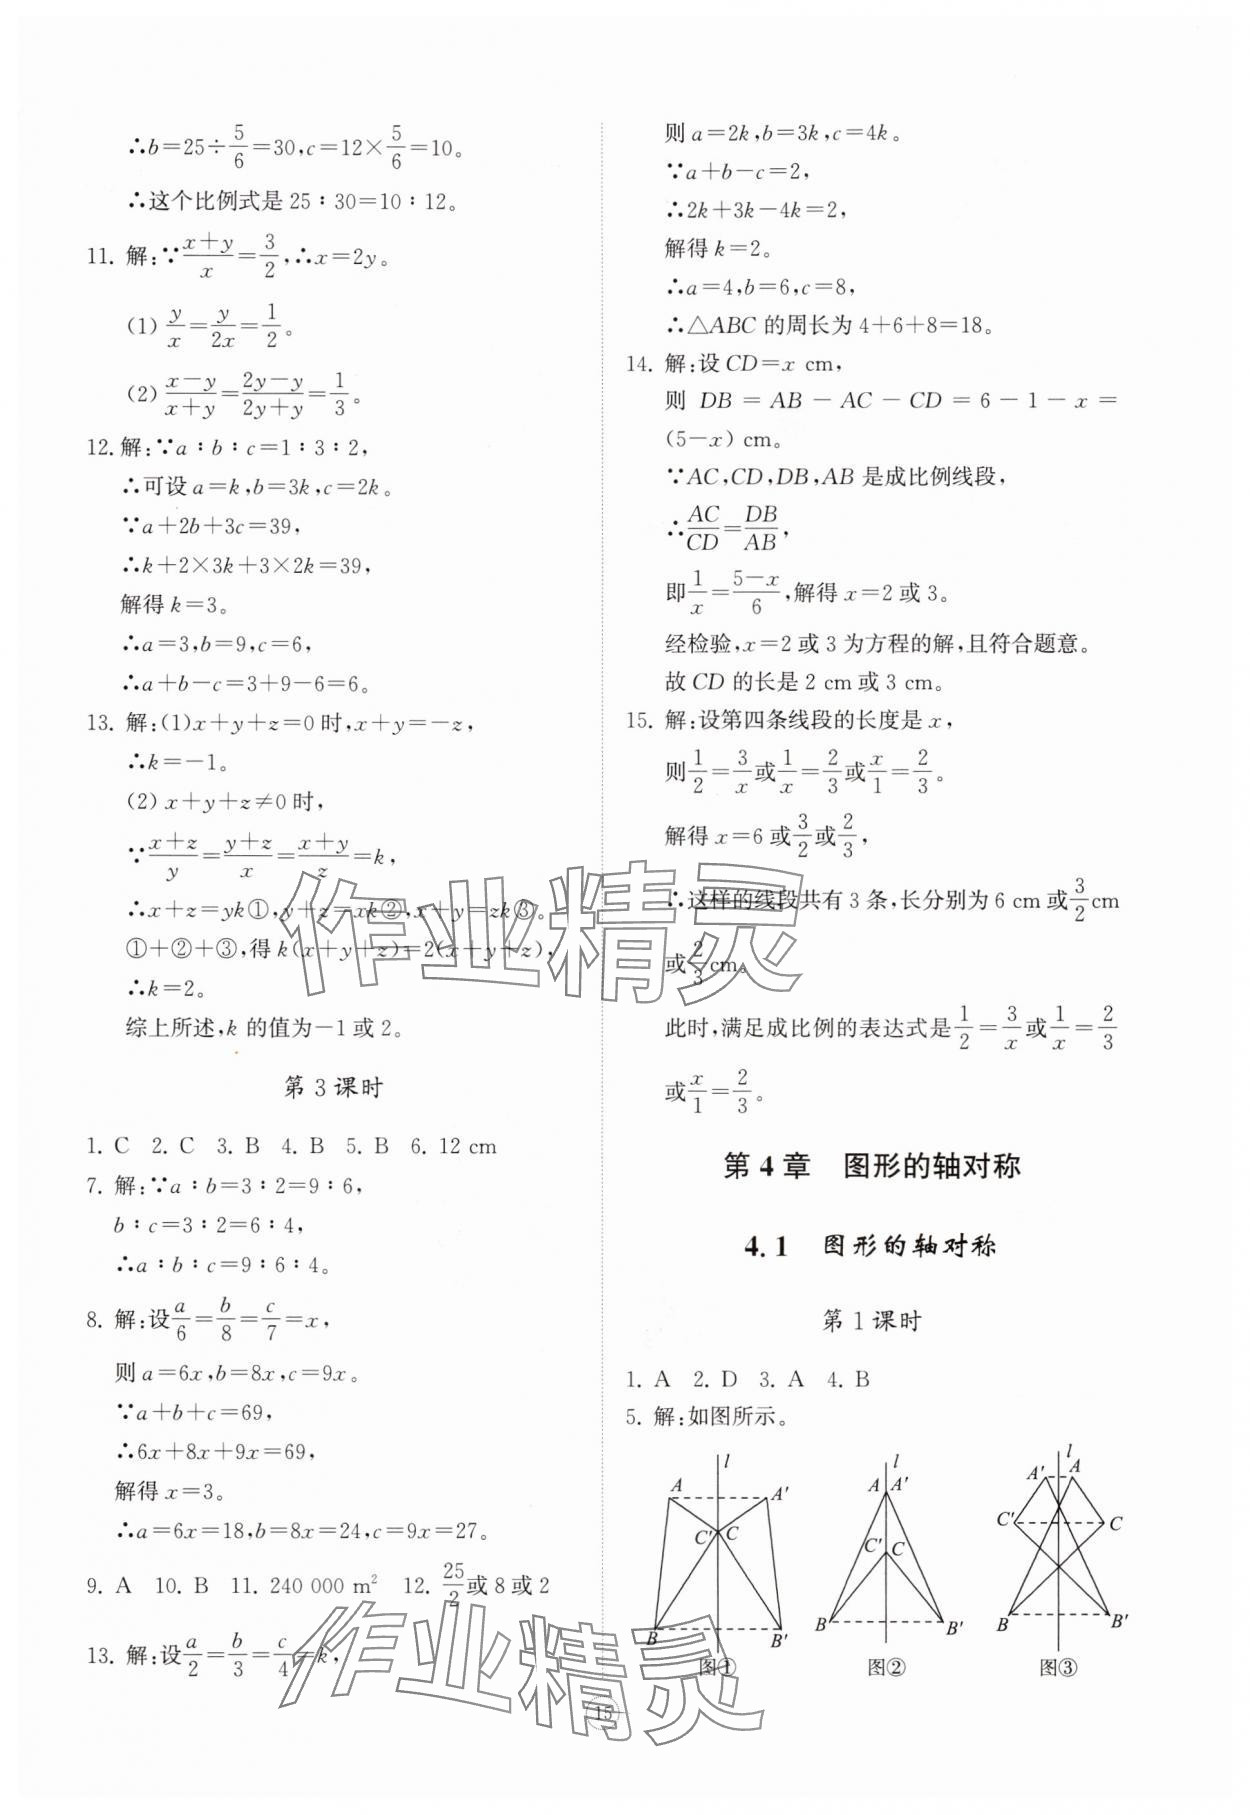 ∴b=25÷5/6=30,c=12×5/6=10。
∴这个比例式是 25∶30=10∶12。
11. 解:∵(x+y)/x=3/2,∴x=2y。
(1) y/x=y/2x=1/2。
(2) (x-y)/(x+y)=(2y-y)/(2y+y)=1/3。
12. 解:∵a∶b∶c=1∶3∶2,
∴可设 a=k,b=3k,c=2k。
∵a+2b+3c=39,
∴k+2×3k+3×2k=39,
解得 k=3。
∴a=3,b=9,c=6,
∴a+b-c=3+9-6=6。
13. 解:(1)x+y+z=0 时,x+y=-z,
∴k=-1。
(2) x+y+z≠0 时,
∵(x+z)/y=(y+z)/x=(x+y)/z=k,
∴x+z=yk①,y+z=xk②,x+y=zk③。
①+②+③,得 k(x+y+z)=2(x+y+z),
∴k=2。
综上所述,k 的值为-1 或 2。
第 3 课时
1. C 2. C 3. B 4. B 5. B 6. 12 cm
7. 解:∵a∶b=3∶2=9∶6,
b∶c=3∶2=6∶4,
∴a∶b∶c=9∶6∶4。
8. 解:设a/6=b/8=c/7=x,
则 a=6x,b=8x,c=9x。
∵a+b+c=69,
∴6x+8x+9x=69,
解得 x=3。
∴a=6x=18,b=8x=24,c=9x=27。
9. A 10. B 11. 240 000 m² 12. 25/2或 8 或 2
13. 解:设a/2=b/3=c/4=k,
则 a=2k,b=3k,c=4k。
∵a+b-c=2,
∴2k+3k-4k=2,
解得 k=2。
∴a=4,b=6,c=8,
∴△ABC 的周长为 4+6+8=18。
14. 解:设 CD=x cm,
则 DB = AB - AC - CD = 6 - 1 - x =
(5-x) cm。
∵AC,CD,DB,AB 是成比例线段,
∴AC/CD=DB/AB,
即1/x=(5-x)/6,解得 x=2 或 3。
经检验,x=2 或 3 为方程的解,且符合题意。
故 CD 的长是 2 cm 或 3 cm。
15. 解:设第四条线段的长度是 x,
则1/2=3/x或1/x=2/3或x/1=2/3。
解得 x=6 或3/2或2/3,
∴这样的线段共有 3 条,长分别为 6 cm 或3/2cm
或2/3cm。
此时,满足成比例的表达式是1/2=3/x或1/x=2/3
或x/1=2/3。
第 4 章 图形的轴对称
4.1 图形的轴对称
第 1 课时
1. A 2. D 3. A 4. B
5. 解:如图所示。
l
A A′
C′ C
B B′
图①
l
A A′
C′ C
B B′
图②
l
A′ A
C′ C
B B′
图③
15
作业精灵
作业精灵